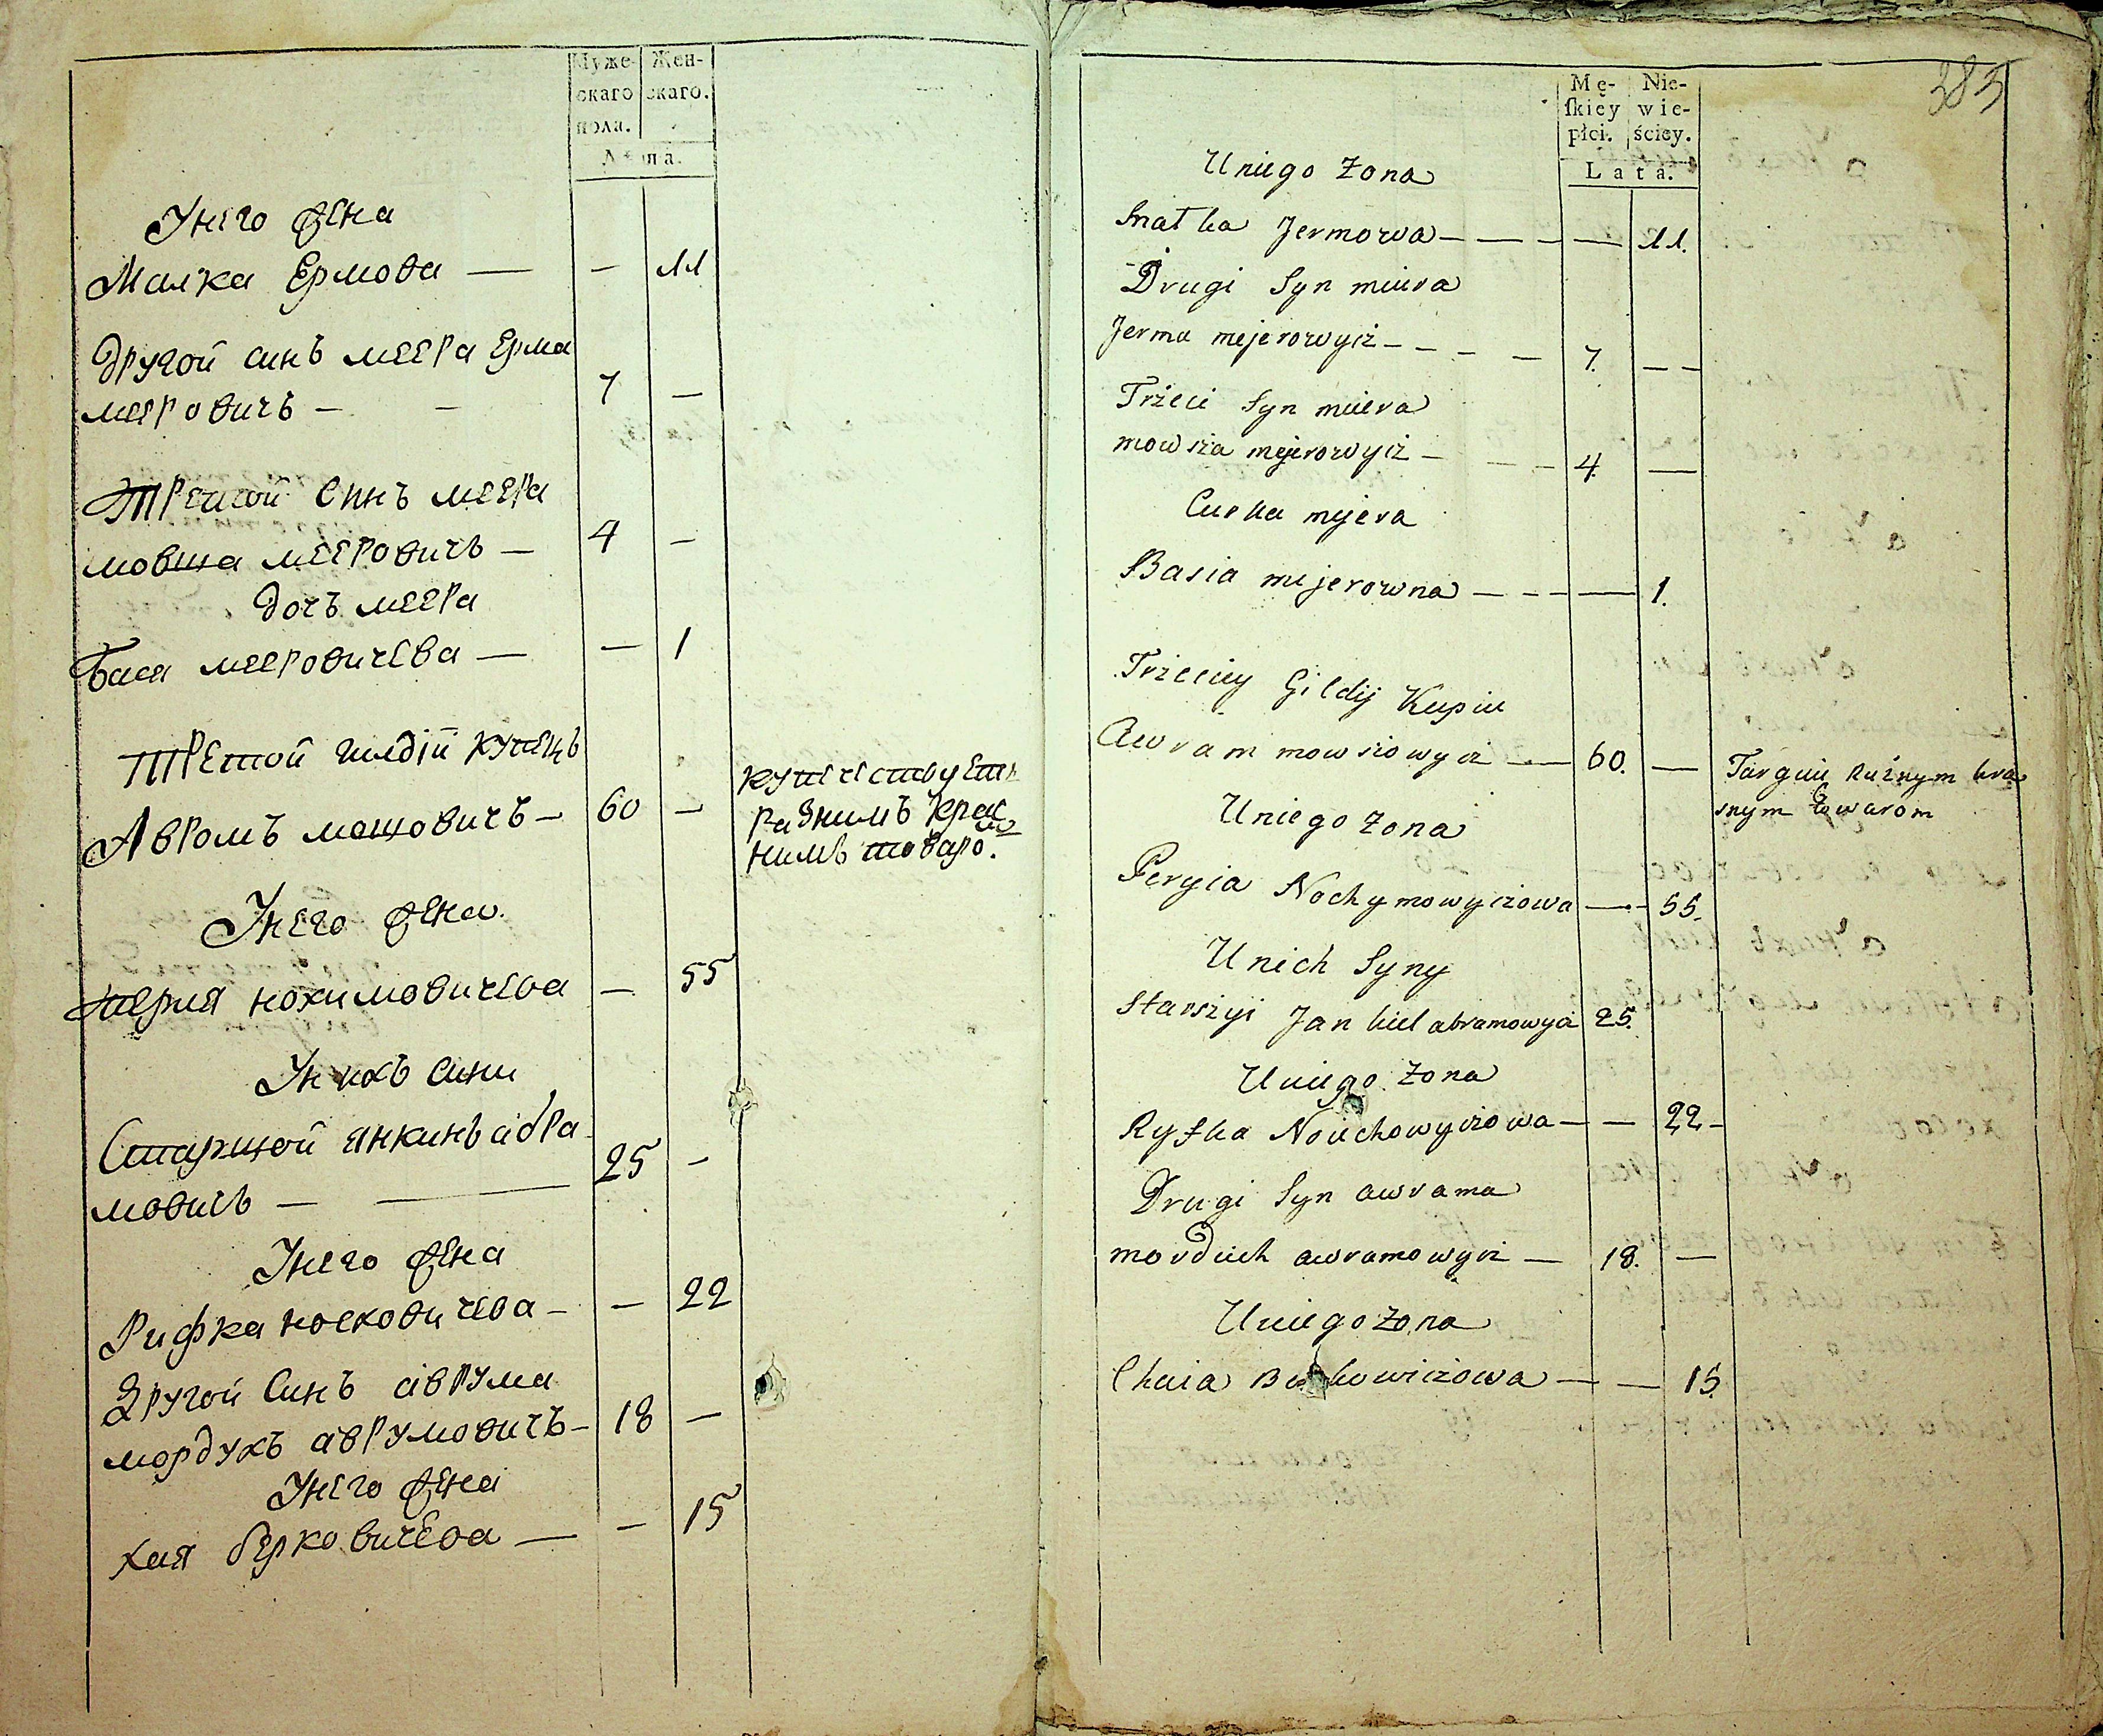 Муже-
скаго
пола.
Жен-
скаго.
Лѣта.
Унего жена
Малка Ермова — — 11
Другой синъ меера Ерма
мееровичъ — — 7 —
Третой Синъ меера
мовша мееровичъ — 4 —
дочъ меера
Бася мееровичева — — 1
Третой гилдіи купецъ
Авромъ мошовичъ — 60 —
купечествуетъ
разнимъ крас
нимъ товаро.м
Унего жена
перля нохимовичева — 55
Унихъ сини
Старшой янкинъ абра
мовичъ — — 25 —
Унего жена
Рифка ноеховичева — — 22
Другой Синъ аврума
мордухъ аврумовичъ — 18 —
Унего жена
хая берковичева — — 15
383
Mę-
skiey
płci.
Nie-
wie-
ściey.
Lata.
Uniego Zona
Matka Jermowa — — — — 11.
Drugi Syn miiera
Jerma mejerowyiz — — — — 7. — —
Trżeci Syn miiera
mowsza mejerowyiz — — — 4. —
Curka mijera
Basia mijerowna — — — — 1.
Trzeciey Gildij Kupiu
Awram mowsiowycz — 60. —
Targuie Rużnym kra
snym towarom
Uniego zona
Peryia Nochymowyczowa — — 55.
Unich Syny
Starszyi Jankiel abramowycz 25.
Uniego zona
Ryfka Noiechowyczowa — — 22 —
Drugi Syn awrama
morduch awramowycz — 18. —
Uniego zona
Chaia Berkowiczowa — — 15.